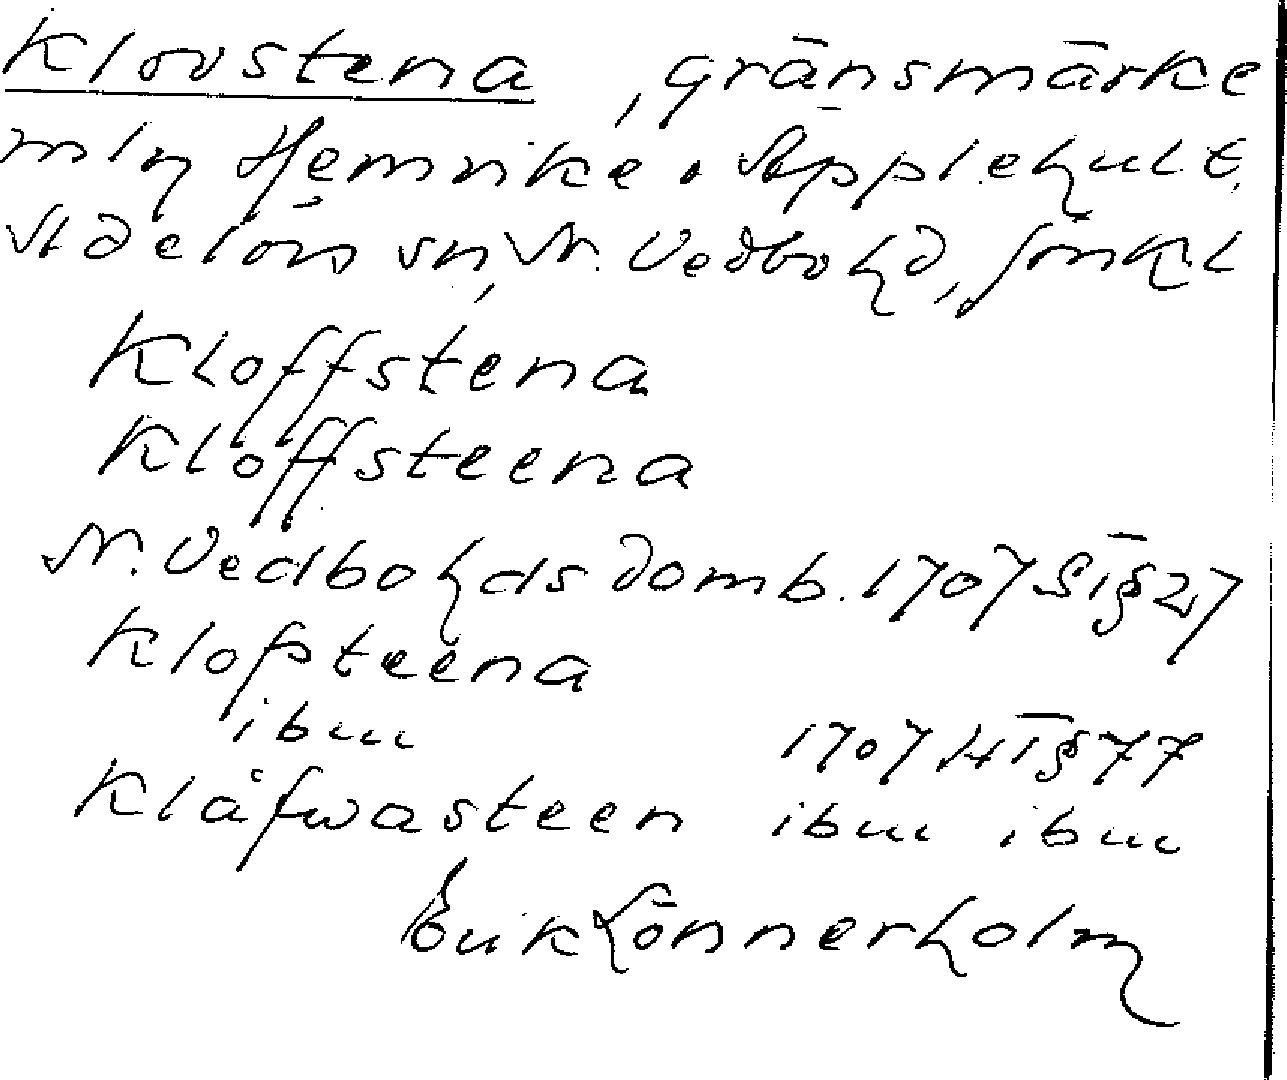 Klovstena, gränsmärke
mln Hemrike o. Äpplehult,
Adelövs sn, N. Vedbohd, Jönk l
Kloffstena
Kloffsteena
N. Vedbohds domb. 1707 S I § 27
Klofsteena
ibm 1707 H I § 77
Klåfwasteen ibm ibm
Erik Lönnerholm